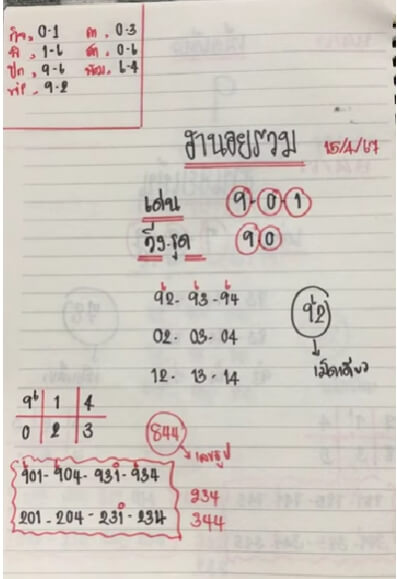 0-1 ค. 0-3
1-6 ส. 0-6
9-6 พฤ. 6-4
9-2
ฮานอยรวม 15/4/67
เด่น 9-0-1
วิ่ง-รูด 90
92- 93 -94
02- 03-04
12- 13-14
92
เม็ดเดียว
9 1 4
0 2 3
844
เลขธูป
901- 904- 931- 934
201 - 204 - 231- 234
934
344